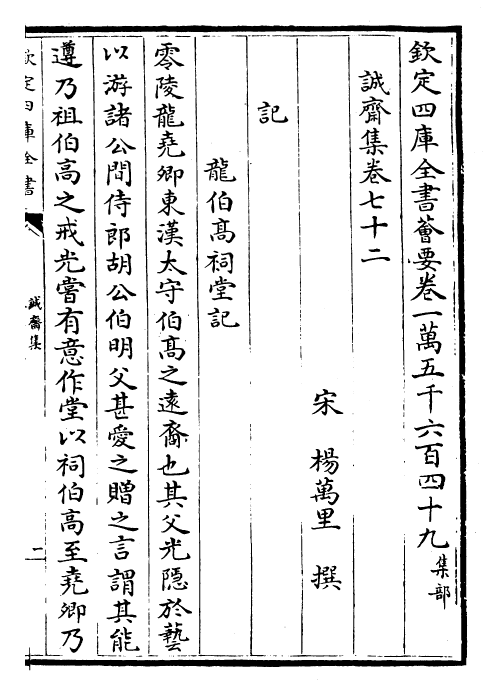 欽定四庫全書薈要卷一萬五千六百四十九 集部
誠齋集卷七十二
宋 楊萬里 撰
記
龍伯高祠堂記
零陵龍堯卿東漢太守伯高之遠裔也其父光隱於藝
以游諸公間侍郎胡公伯明父甚愛之贈之言謂其能
遵乃祖伯高之戒光嘗有意作堂以祠伯高至堯卿乃
欽定四庫全書
誠齋集
二